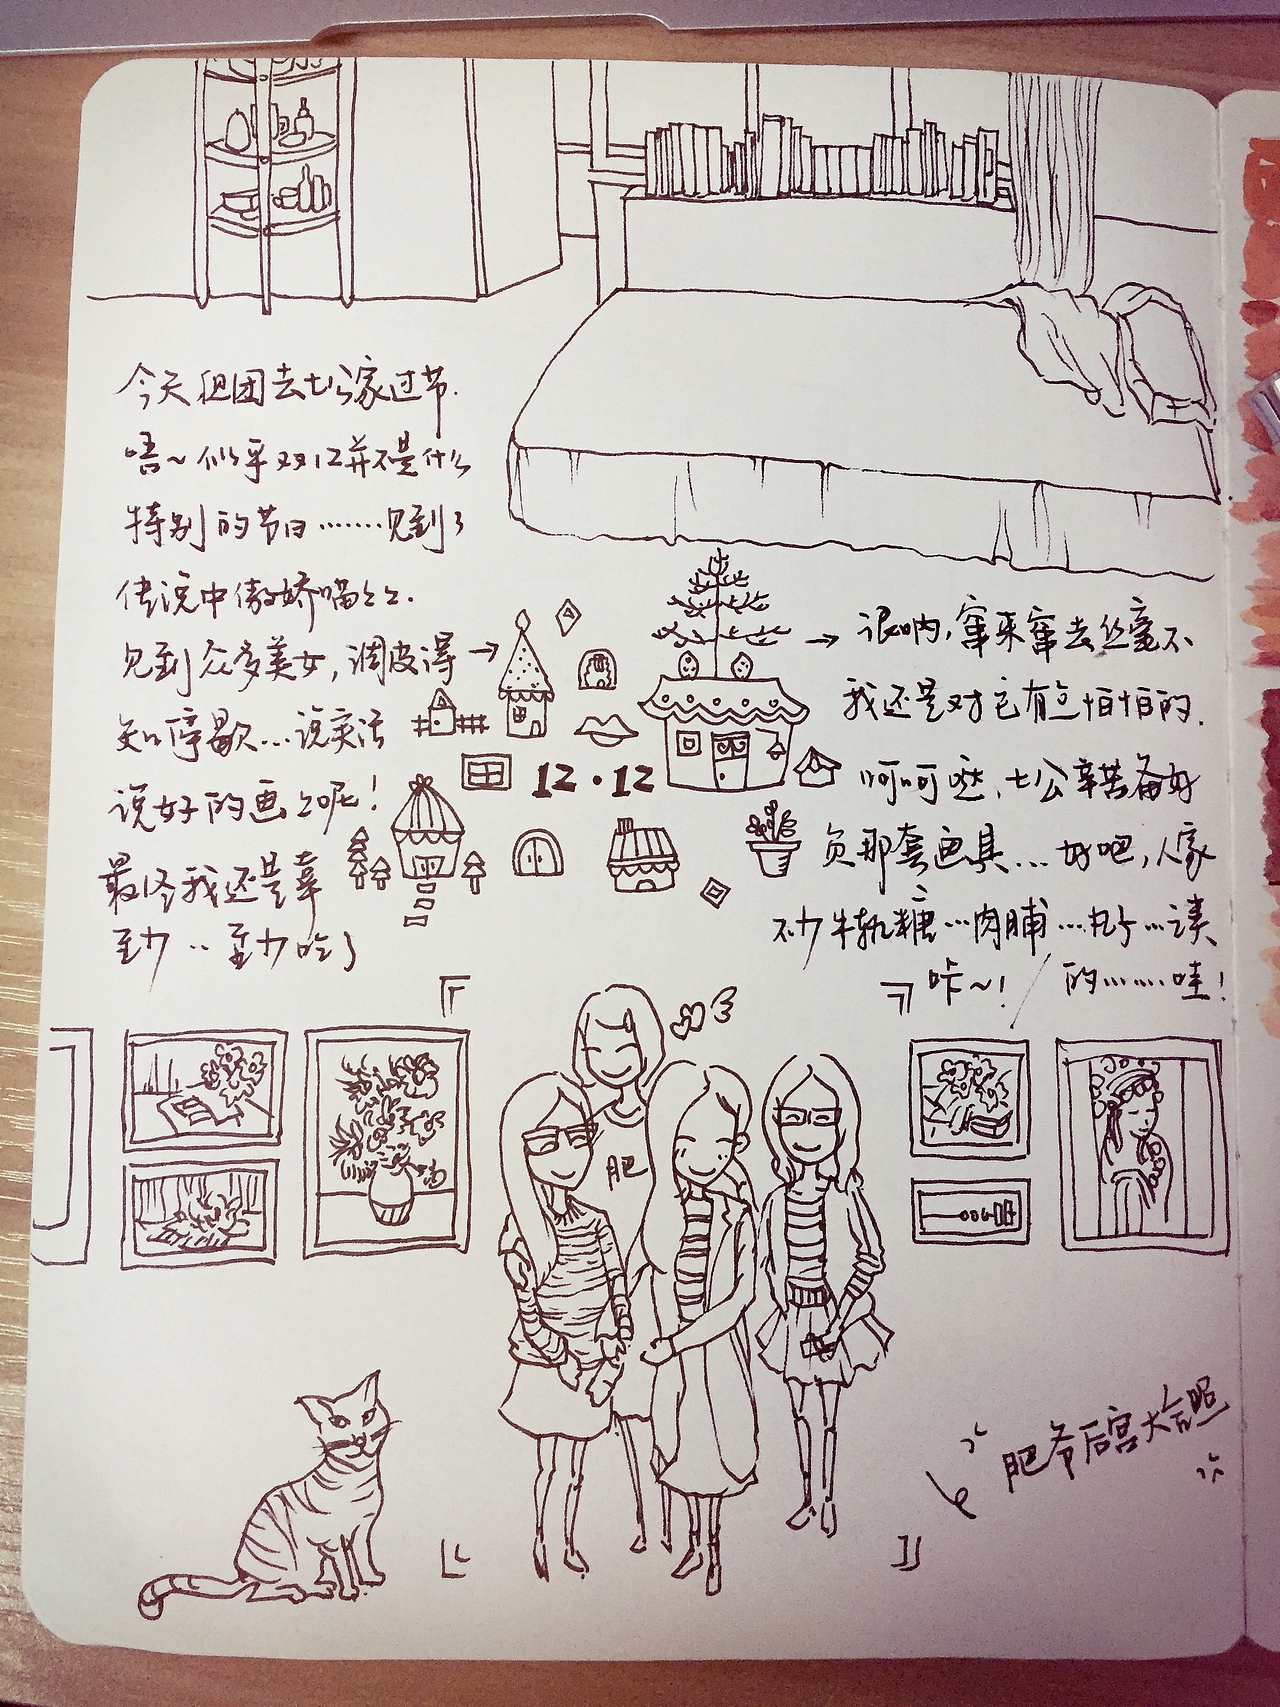 今天组团去七公家过节.
唔~似乎双12并不是什么
特别的节日……见到了
传说中傲娇喵々々.
见到众多美女,调皮得→
→很呐,窜来窜去丝毫不
知停歇…说实话
我还是对它有点怕怕的.
说好的画々呢!
呵呵哒,七公辛苦备好
最终我还是辜
负那套画具…好吧,人家
至少‥至少吃了
不少牛轧糖…肉脯…丸子…
的……哇!
咔~!
12·12
肥
肥爷后宫大合照